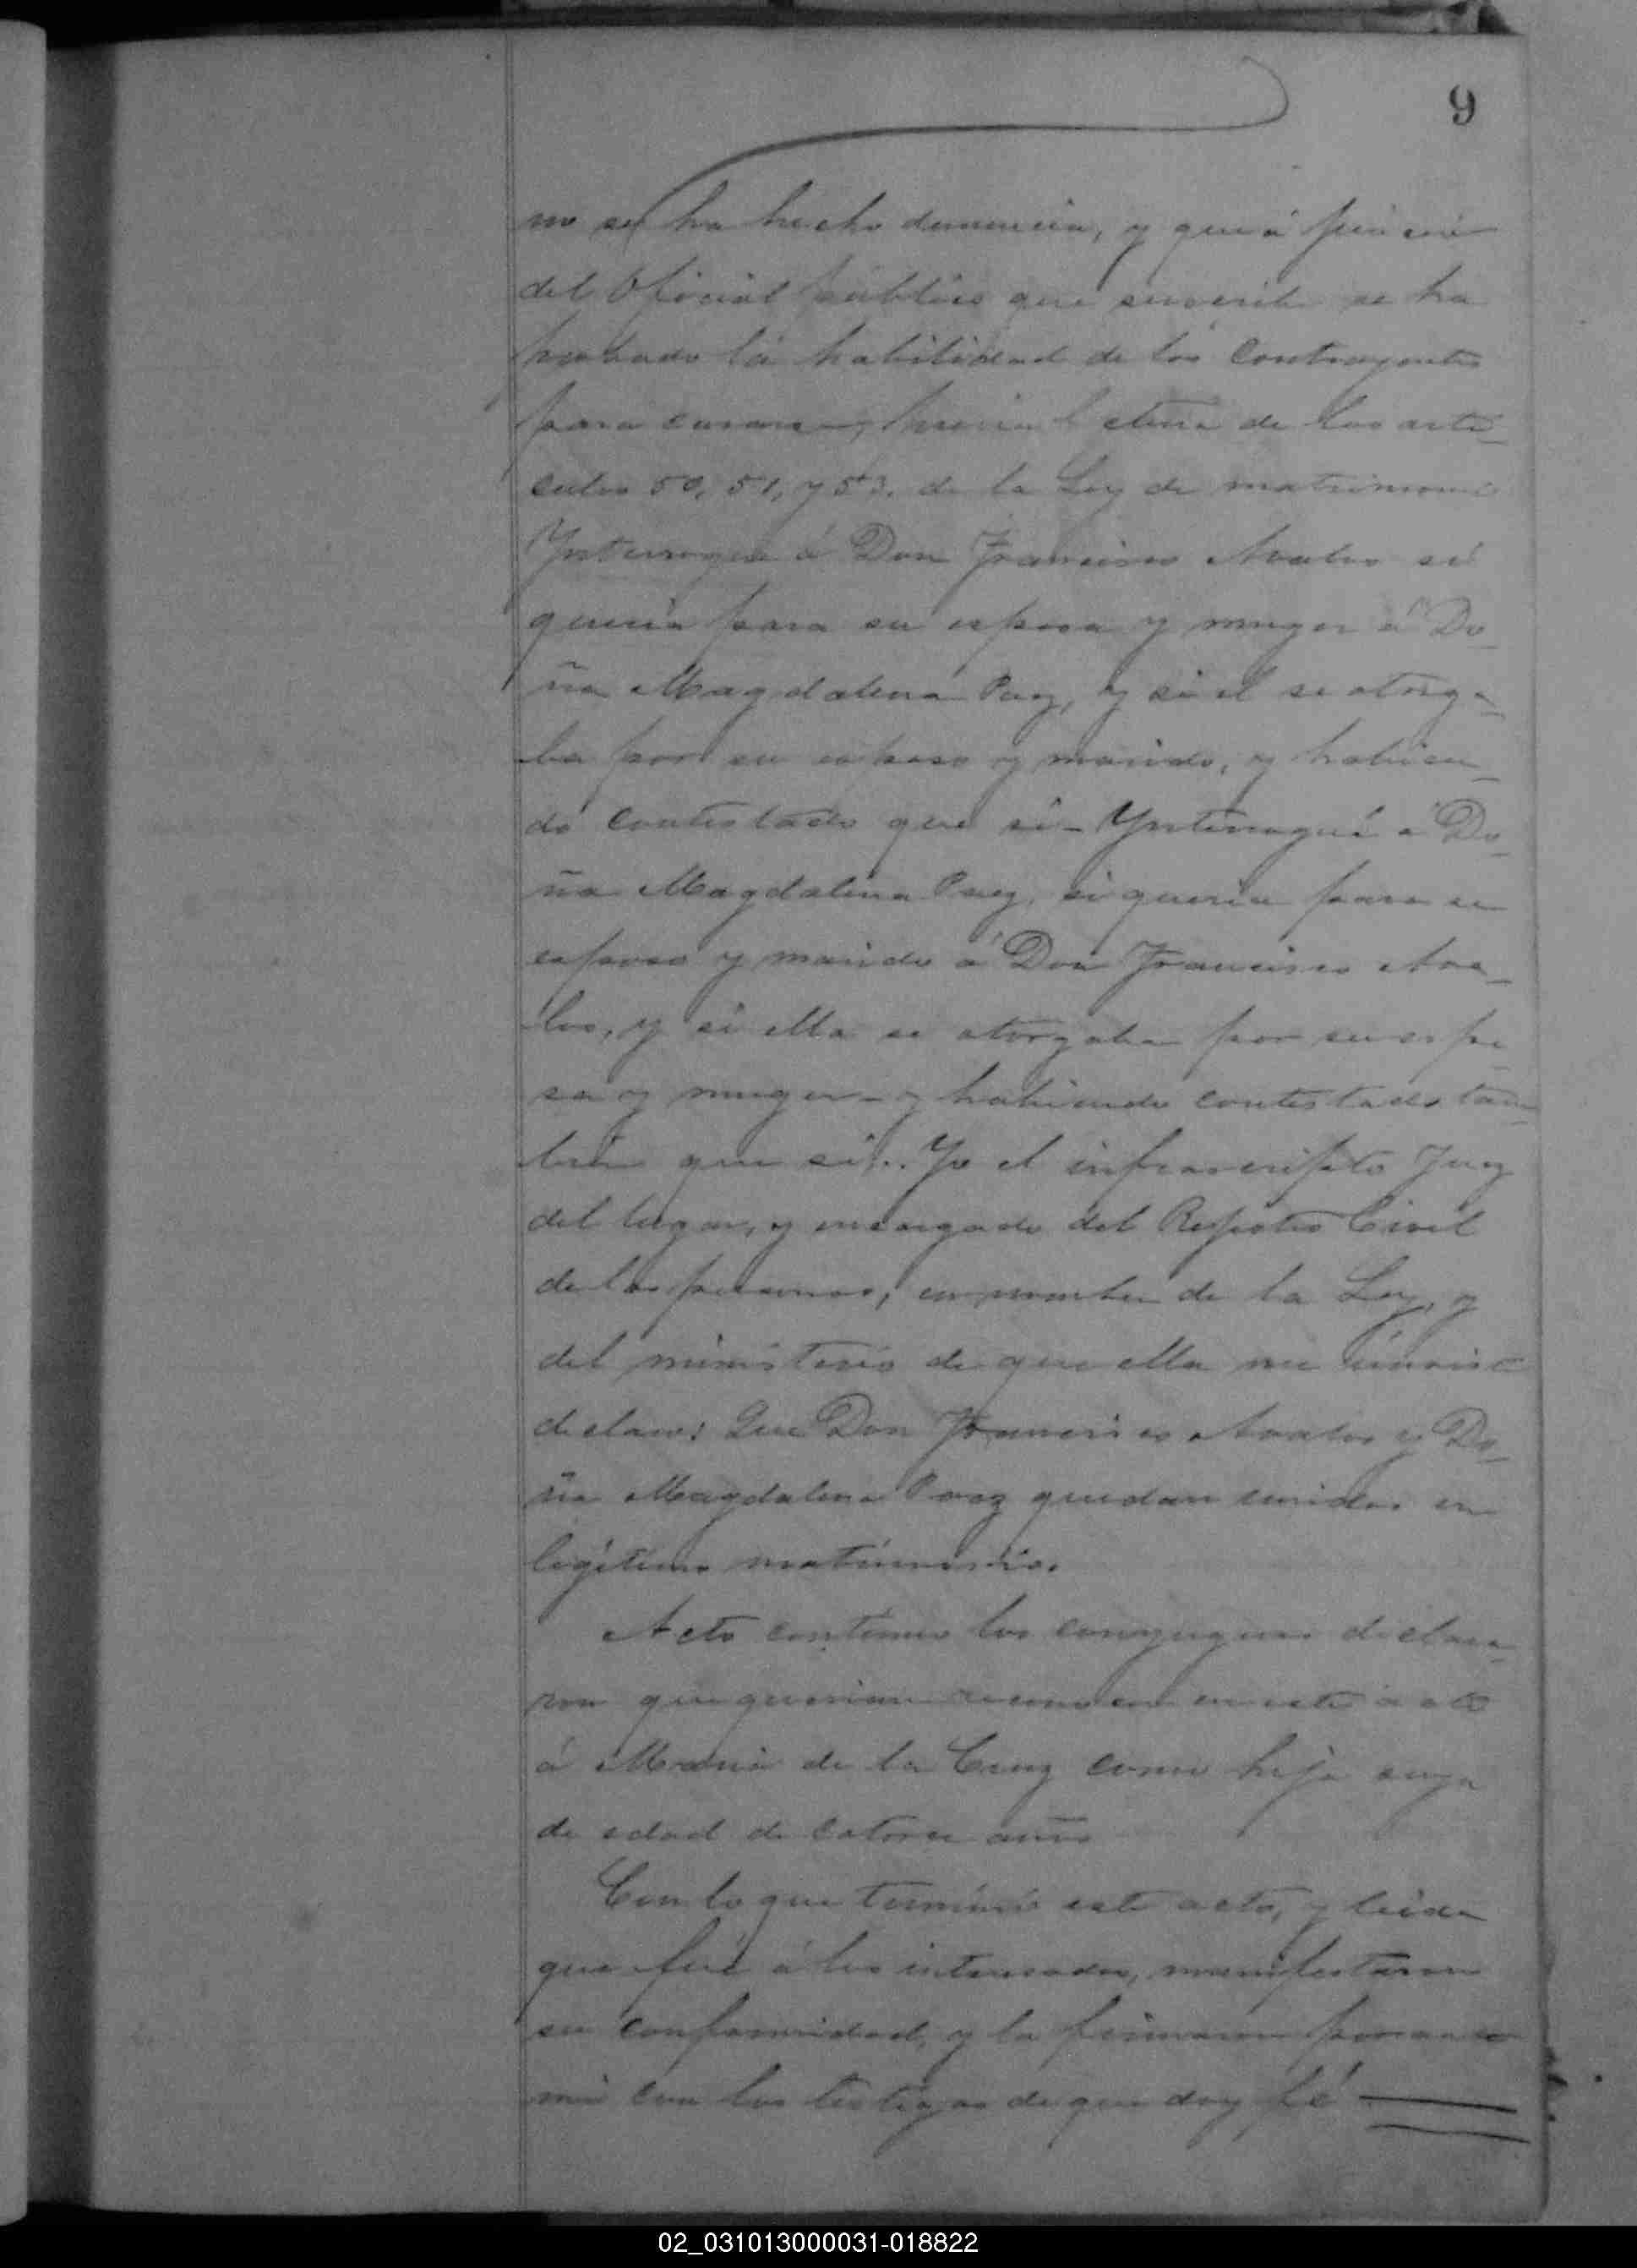 9
no se ha hecho denuncia, y que á juicio
del Oficial publico que suscribe se ha
probado la habilidad de los contrayentes
para casarse, previa lectura de los arti-
culos 50, 51, y 53. de la Ley de matrimonio
Ynterrogué á Don Francisco Avalos si
queria para su esposa y muger á Do-
ña Magdalena Paez, y si el se otorga-
ba por su esposo y marido, y habien-
do contestado que si- Ynterrogué a Do-
ña Magdalena Paez, si queria para su
esposo y marido á Don Francisco Ava-
los, y si ella se otorgaba por su espo
sa y muger- y habiendo contestado tam-
bien que si.. Yo el infrascripto Juez
del lugar, y encargado del Rejistro Civil
de las personas, en nombre de la Ley, y
del ministerio de que ella me inviste
declaro: Que Don Francisco Avalos y Do-
ña Magdalena Paez quedan unidos en
legitimo matrimonio.
Acto continuo los conyugues declara-
ron que querian reconocer en este acto
á Maria de la Cruz como hija suya
de edad de catorce años
Con lo que terminó este acto, y leida
que fué á los interesados, manifestaron
su conformidad, y la firmaron por ante
mi con los testigos de que doy fé
02_031013000031-018822